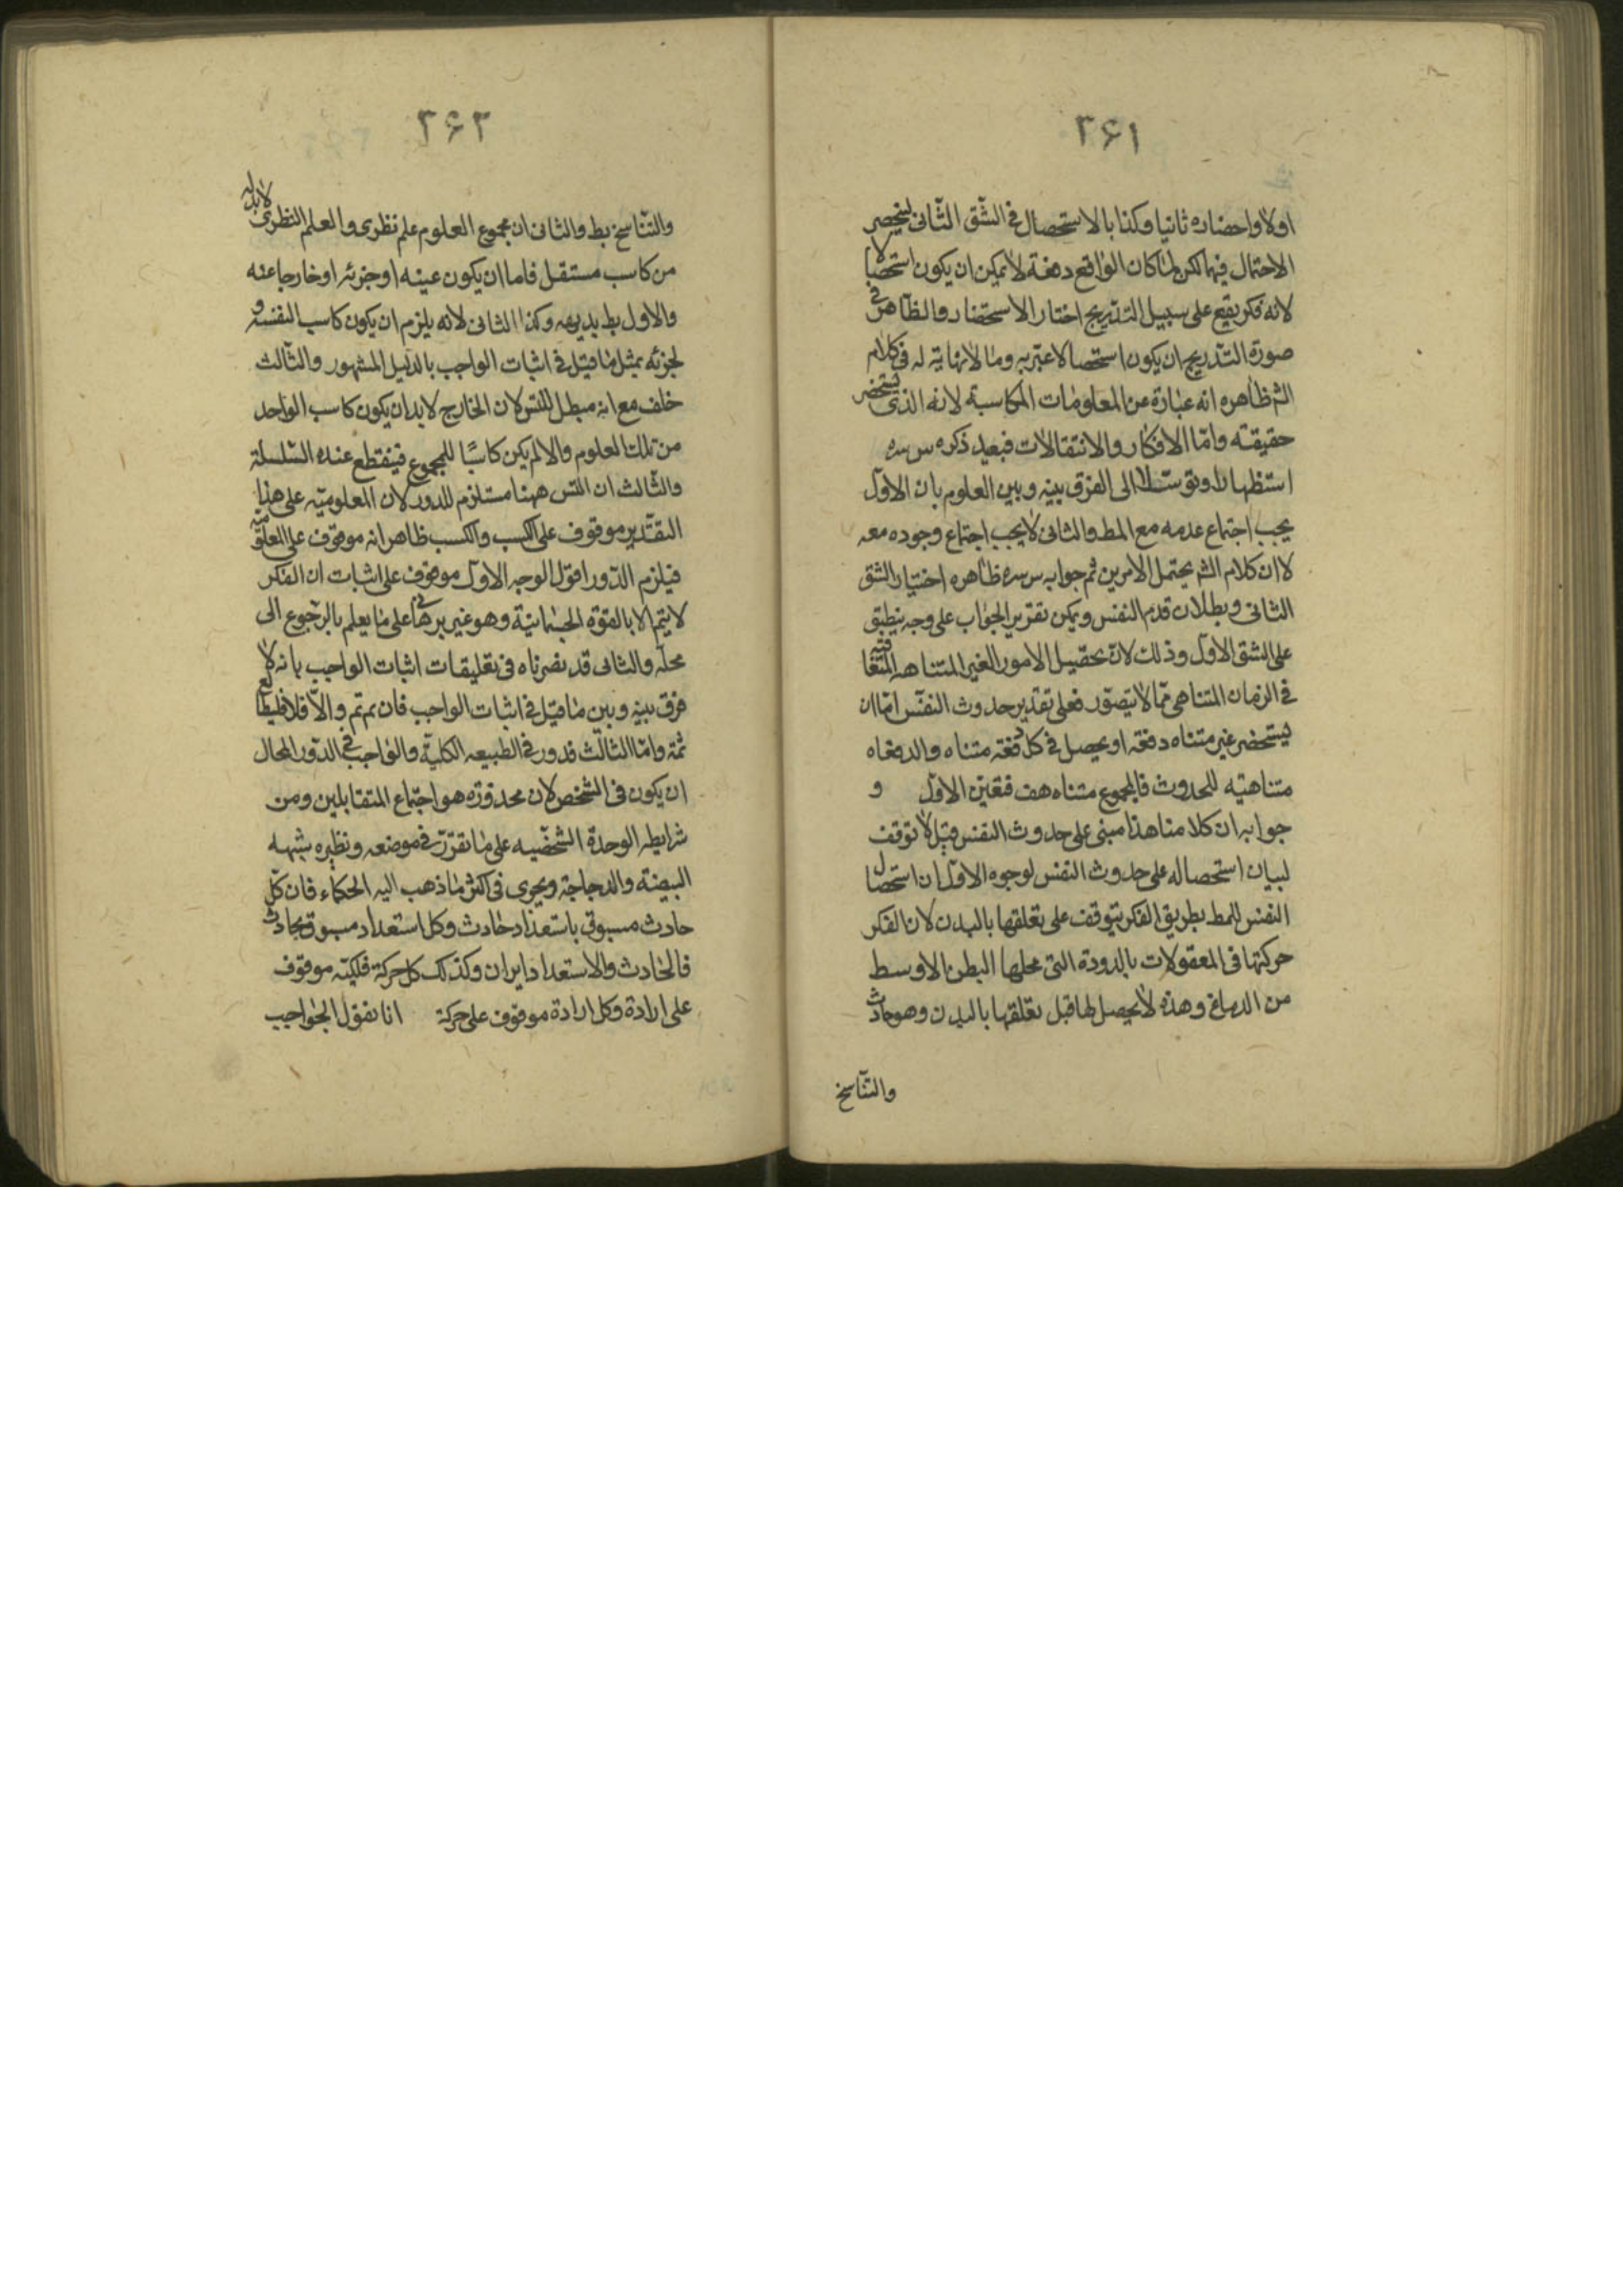 ٣۶١
اولا واحضاره ثانيا وكذا بالاستحصال فى الشّق الثّانى لينحصر
الاحتمال فيهما لكن لمّا كان الواقع دفعة لا يمكن ان يكون استحصالا
لانه فكر يقع على سبيل التدريج اختار الاستحضار والظّاهر فى
صورة التّدريج ان يكون استحصالا عبّر به وما لا نهاية له فى كلام
الشم ظاهره انه عبارة عن المعلومات المكاسبة لانه الذى يستحضر
حقيقته وامّا الافكار والانتقالات فبعيد ذكره س سره
استظهارا وتوسّلا الى الفرق بينه وبين العلوم بان الاوّل
يجب اجتماع عدمه مع المط والثانى لا يجب اجتماع وجوده معه
لا ان كلام الشم يحتمل الامرين ثم جوابه س سره ظاهره اختيار الشق
الثانى وبطلان قدم النفس ويمكن تقرير الجواب على وجه ينطبق
على الشق الاول وذلك لانّ تحصيل الامور الغير المتناهيه المتعاقبة
فى الزمان المتناهى ممّا لا يتصوّر فعلى تقدير حدوث النفس امّا ان
يستحضر غير متناه دفعة او يحصل فى كل دفعة متناه والدفعات
متناهيّه للحدوث فالمجموع متناه هف فتعيّن الاوّل و
جوابه ان كلامنا هذا مبنى على حدوث النفس قيل لا توقف
لبيان استحصاله على حدوث النفس لوجوه الاوّل ان استحصال
النفس للمط بطريق الفكر يتوقف على تعلقها بالبدن لان الفكر
حركتها فى المعقولات بالدودة التى محلها البطن الاوسط
من الدماغ وهذه لا يحصل لها قبل تعلقها بالبدن وهو حادث
والتّناسخ
٣۶٢
والتّناسخ بط والثانى ان مجموع العلوم علم نظرى والعلم النظرى لابد له
من كاسب مستقل فاما ان يكون عينه او جزئه او خارجا عنه
والاول بط بديهه وكذا الثانى لانه يلزم ان يكون كاسبا لنفسه و
لجزئه بمثل ما قيل فى اثبات الواجب بالدليل المشهور والثّالث
خلف مع انه مبطل للتس لان الخارج لابد ان يكون كاسب الواحد
من تلك العلوم والا لم يكن كاسبًا للمجموع فينقطع عنده السّلسلة
والثّالث ان التس ههنا مستلزم للدور لان المعلوميّه على هذا
التقدير موقوف على الكسب والكسب ظاهر انه موقوف على المعلوميّه
فيلزم الدّور اقول الوجه الاول موقوف على اثبات ان الفكر
لا يتم الا بالقوة الجسمانيّة وهو غير برهانى على ما يعلم بالرّجوع الى
محلّه والثانى قد نصرناه فى تعليقات اثبات الواجب بانه لا
فرق بينه وبين ما قيل فى اثبات الواجب فان تم تم والاّ فلا فليطالع
ثمة وامّا الثّالث فدور فى الطبيعه الكليّة والواجب فى الدّور المحال
ان يكون فى الشخص لان محذوره هو اجتماع المتقابلين ومن
شرايطه الوحدة الشّخصّيه على ما تقرّر فى موضعه ونظيره شبهه
البيضة والدجاجة ويجرى فى اكثر ما ذهب اليه الحكماء فان كلّ
حادث مسبوق باستعداد حادث وكل استعداد مسبوق بحادث
فالحادث والاستعداد دايران وكذلك كل حركة فلكيّه موقوف
على ارادة وكل ارادة موقوف على حركة انا نقول الجواجيب